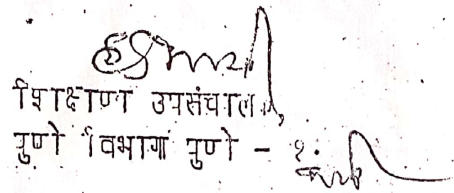 शिक्षण उपसंचालक
पुणे विभाग पुणे - १.